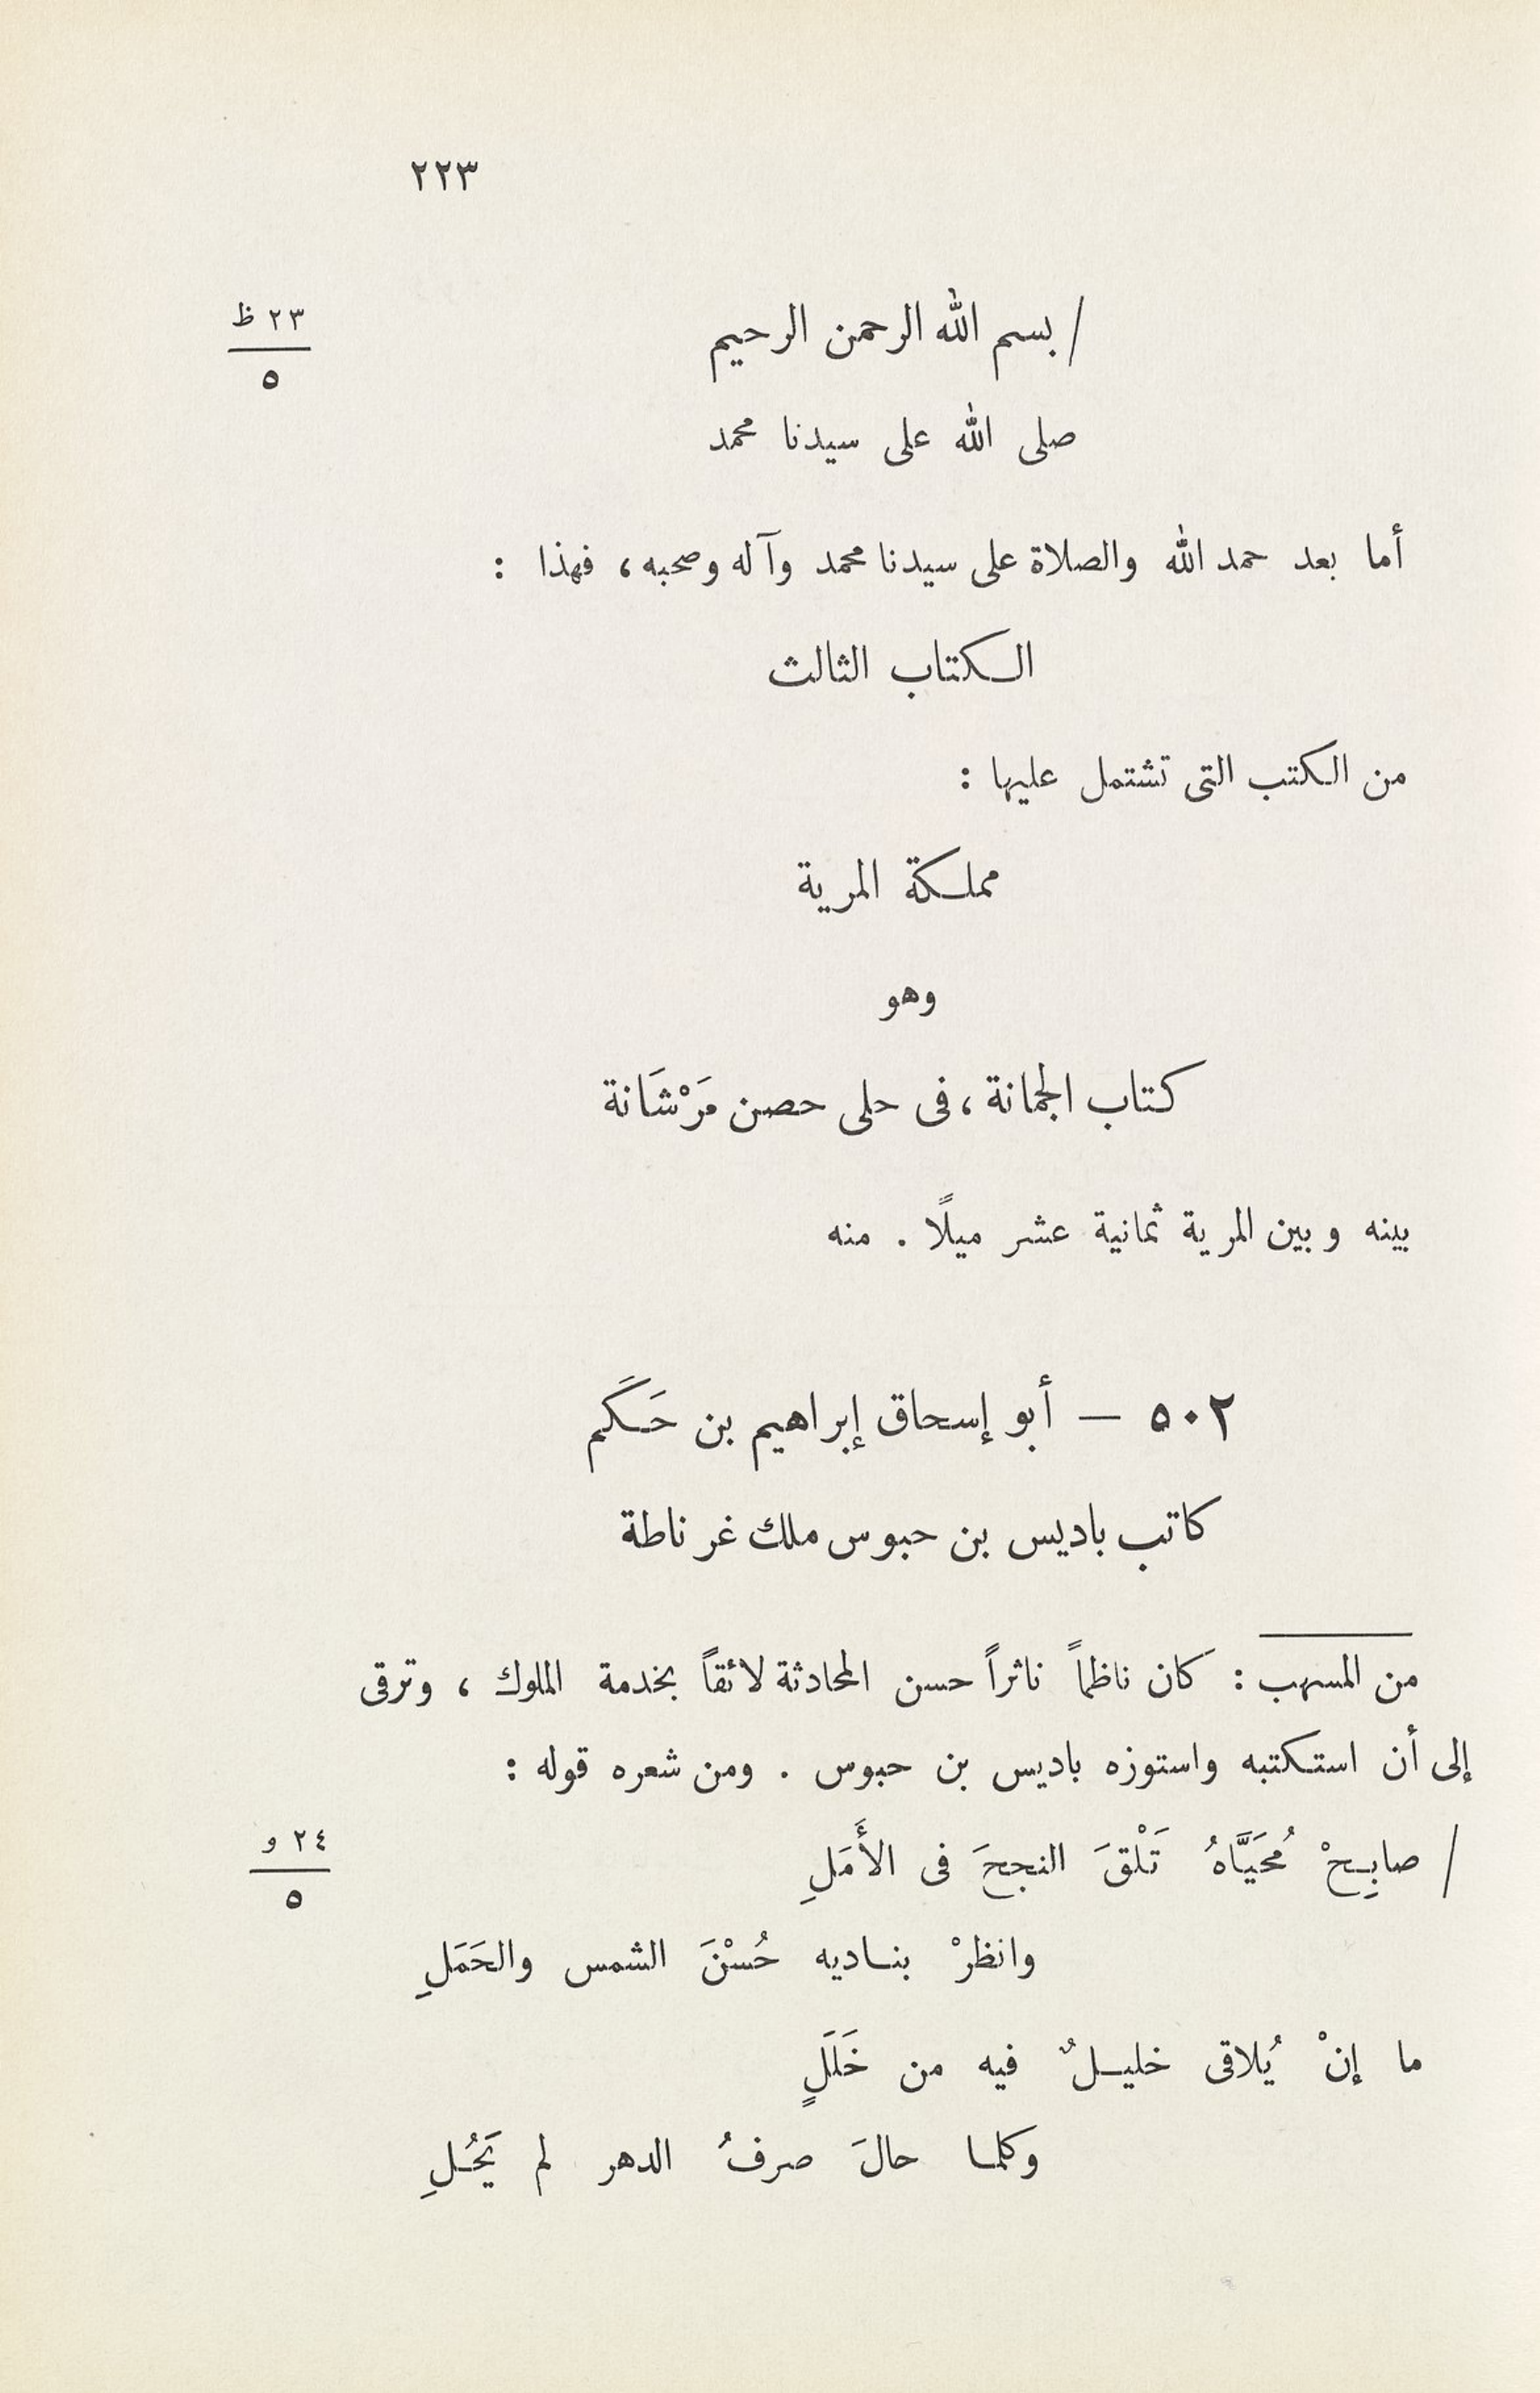 ٢٢٣
/ بسم الله الرحمن الرحيم
٢٣ ظ
٥
صلى الله على سيدنا محمد
أما بعد حمد الله والصلاة على سيدنا محمد وآله وصحبه، فهذا :
الكتاب الثالث
من الكتب التى تشتمل عليها :
مملكة المرية
وهو
كتاب الجمانة، فى حلى حصن مَرْشَانة
بينه وبين المرية ثمانية عشر ميلًا . منه
٥٠٢ — أبو إسحاق إبراهيم بن حَكَم
كاتب باديس بن حبوس ملك غرناطة
من المسهب : كان ناظماً ناثراً حسن المحادثة لائقاً بخدمة الملوك ، وترقى
إلى أن استكتبه واستوزه باديس بن حبوس . ومن شعره قوله :
/ صابِحْ مُحَيَّاهُ تَلْقَ النجحَ فى الأَمَلِ
٢٤ و
٥
وانظرْ بناديه حُسْنَ الشمس والحَمَلِ
ما إنْ يُلاقى خليلٌ فيه من خَلَلٍ
وكلما حالَ صرفُ الدهر لم يَحُلِ